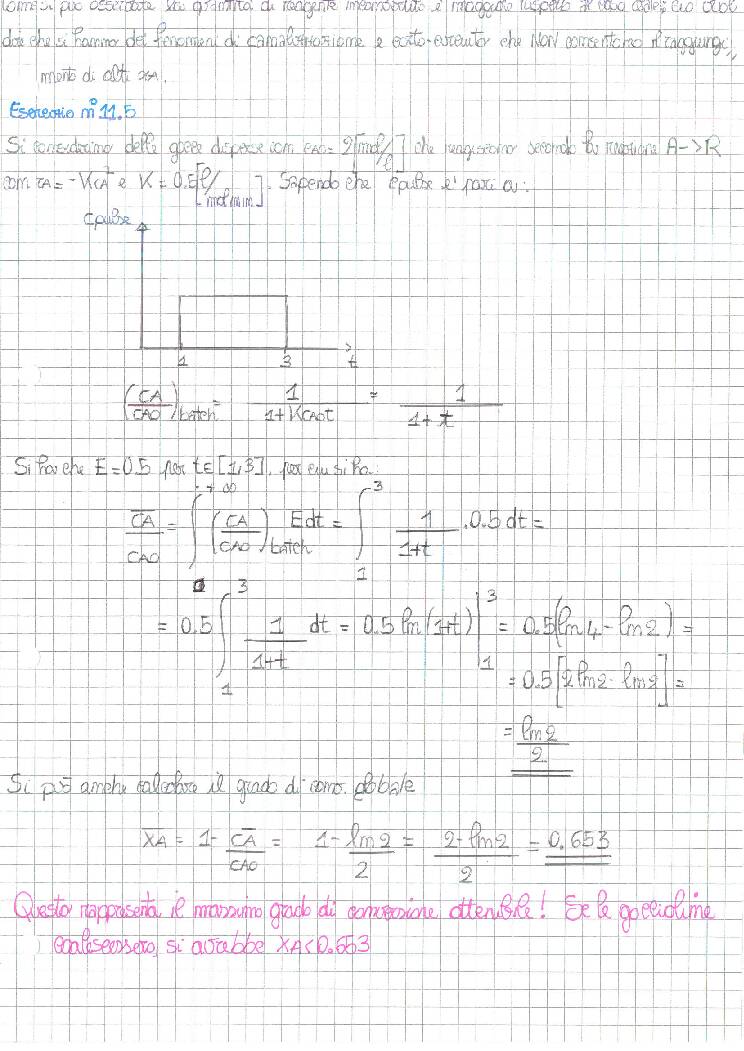 come si può osservare la quantità di reagente inconvertito è maggiore rispetto al caso ideale; ciò vuol
dire che si hanno dei fenomeni di canalizzazione e corto-circuito che NON consentono il raggiungi
mento di alti xA.
Esercizio n° 11.5
Si considerino delle gocce disperse con CA0 = 2[mol/l] che reagiscono secondo la reazione A->R
con rA = -KCA² e K = 0.5[l/mol min]. Sapendo che Cpulse è pari a:
Cpulse
1 3 t
(CA/CA0)batch = 1/(1+KCA0t) = 1/(1+t)
Si ha che E = 0.5 per t∈[1,3], per cui si ha:
C̅A̅/CA0 = ∫₀^{+∞} (CA/CA0)batch E dt = ∫₁³ 1/(1+t) · 0.5 dt =
= 0.5 ∫₁³ 1/(1+t) dt = 0.5 ln(1+t) |₁³ = 0.5(ln4 - ln2) =
= 0.5[2ln2 - ln2] =
= ln2/2
Si può anche calcolare il grado di conv. globale
X̅A̅ = 1 - C̅A̅/CA0 = 1 - ln2/2 = (2 - ln2)/2 = 0.653
Questo rappresenta il massimo grado di conversione ottenibile! Se le goccioline
coalescessero, si avrebbe XA<0.653